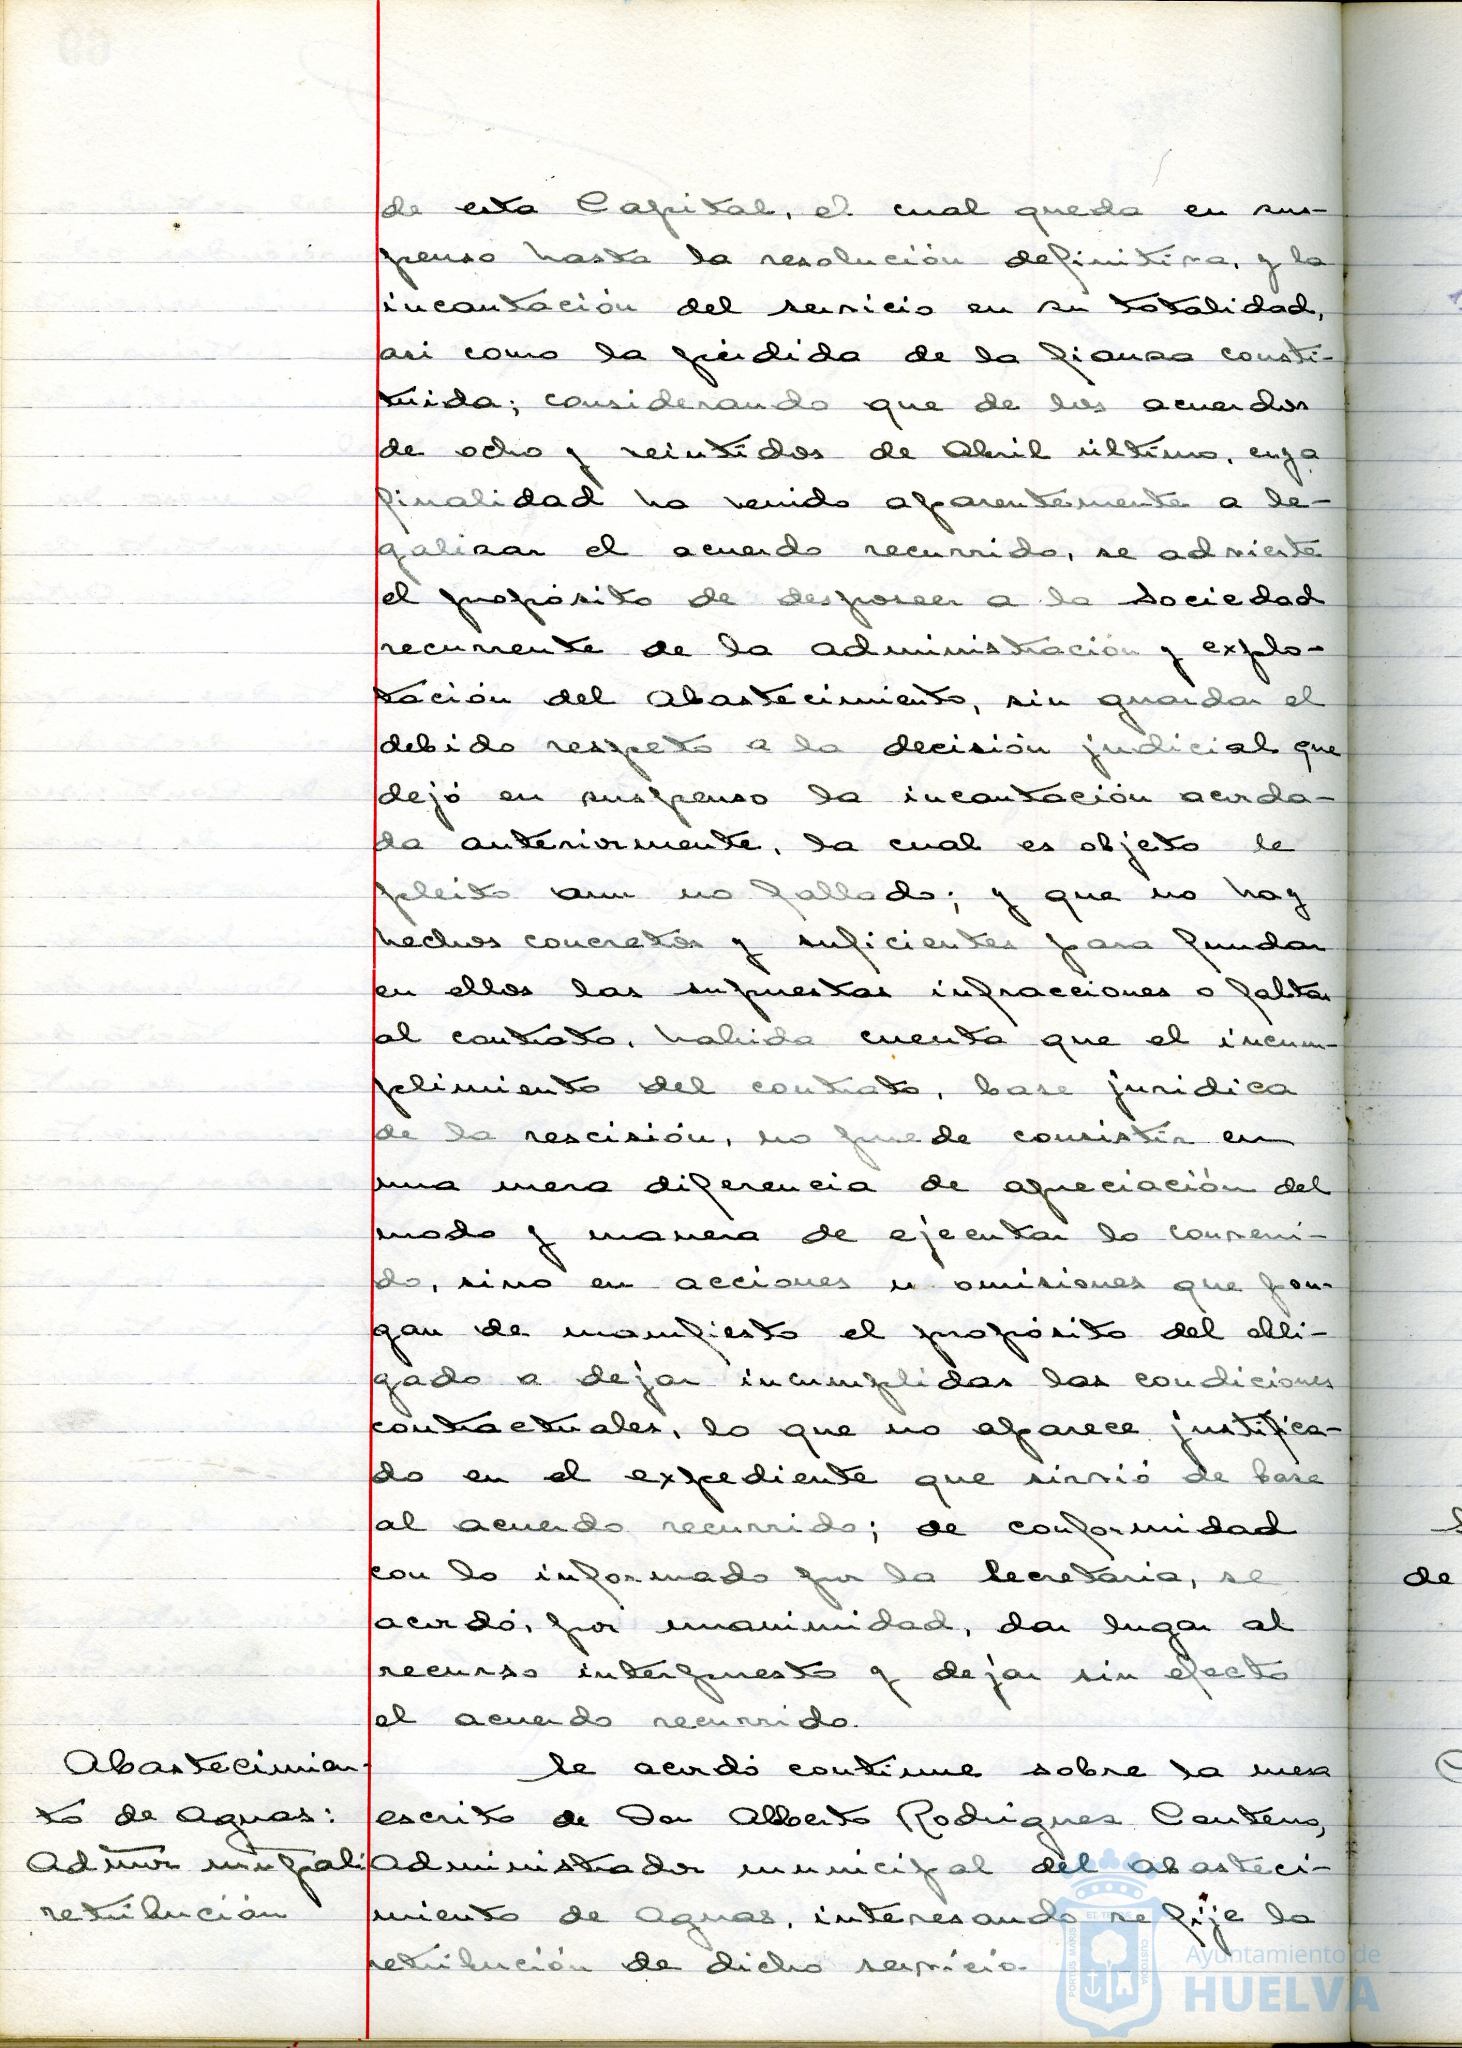 de esta Capital, el cual queda en sus-
penso hasta la resolución definitiva, y la
incautación del servicio en su totalidad,
asi como la pérdida de la fianza consti-
tuida; considerando que de los acuerdos
de ocho y veintidos de Abril último, cuya
finalidad ha venido aparentemente a le-
galizar el acuerdo recurrido, se advierte
el propósito de desposeer a la Sociedad
recurrente de la administración y explo-
tación del Abastecimiento, sin guardar el
debido respeto a la decisión judicial que
dejó en suspenso la incautación acorda-
da anteriormente, la cual es objeto de
pleito aun no fallado; y que no hay
hechos concretos y suficientes para fundar
en ellos las supuestas infracciones o faltas
al contrato, habida cuenta que el incum-
plimiento del contrato, base juridica
de la rescisión, no puede consistir en
una mera diferencia de apreciación del
modo y manera de ejecutar lo conveni-
do, sino en acciones u omisiones que pon-
gan de manifiesto el propósito del obli-
gado a dejar incumplidas las condiciones
contractuales, lo que no aparece justifica-
do en el expediente que sirvió de base
al acuerdo recurrido; de conformidad
con lo informado por la Secretaria, se
acordó, por unanimidad, dar lugar al
recurso interpuesto y dejar sin efecto
el acuerdo recurrido.
Abastecimien-
to de Aguas:
Admor munpal:
retribución
Se acordó continue sobre la mesa
escrito de Don Alberto Rodrigues Centeno,
Administrador municipal del abasteci-
miento de Aguas, interesando se fije la
retribución de dicho servicio.
de
Ayuntamiento de
HUELVA